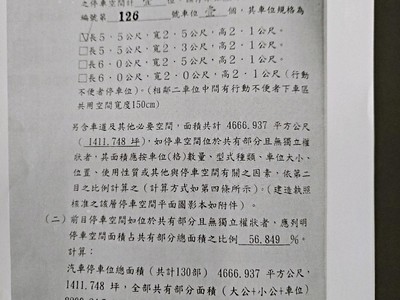 之停車空間計 壹 位
編號第 126 號車位 壹 個,其車位規格為
☑長5.5公尺,寬2.5公尺,高2.1公尺。
□長5.5公尺,寬2.3公尺,高2.1公尺。
□長6.0公尺,寬2.5公尺,高2.1公尺。
□長6.0公尺,寬2.0公尺,高2.1公尺(行動
不便者停車位)。(相鄰二車位中間有行動不便者下車區
共用空間寬度150cm)
另含車道及其他必要空間,面積共計 4666.937 平方公尺
( 1411.748 坪),如停車空間位於共有部分且無獨立權
狀者,其面積應按車位(格)數量、型式種類、車位大小、
位置、使用性質或其他與停車空間有關之因素,依第二
目之比例計算之(計算方式如第四條所示)。(建造執照
核准之該層停車空間平面圖影本如附件)。
(二)前目停車空間如位於共有部分且無獨立權狀者,應列明
停車空間面積占共有部分總面積之比例 56.849 %。
計算:
汽車停車位總面積(共計130部) 4666.937 平方公尺,
1411.748坪,全部共有部分面積(大公+小公+車位)